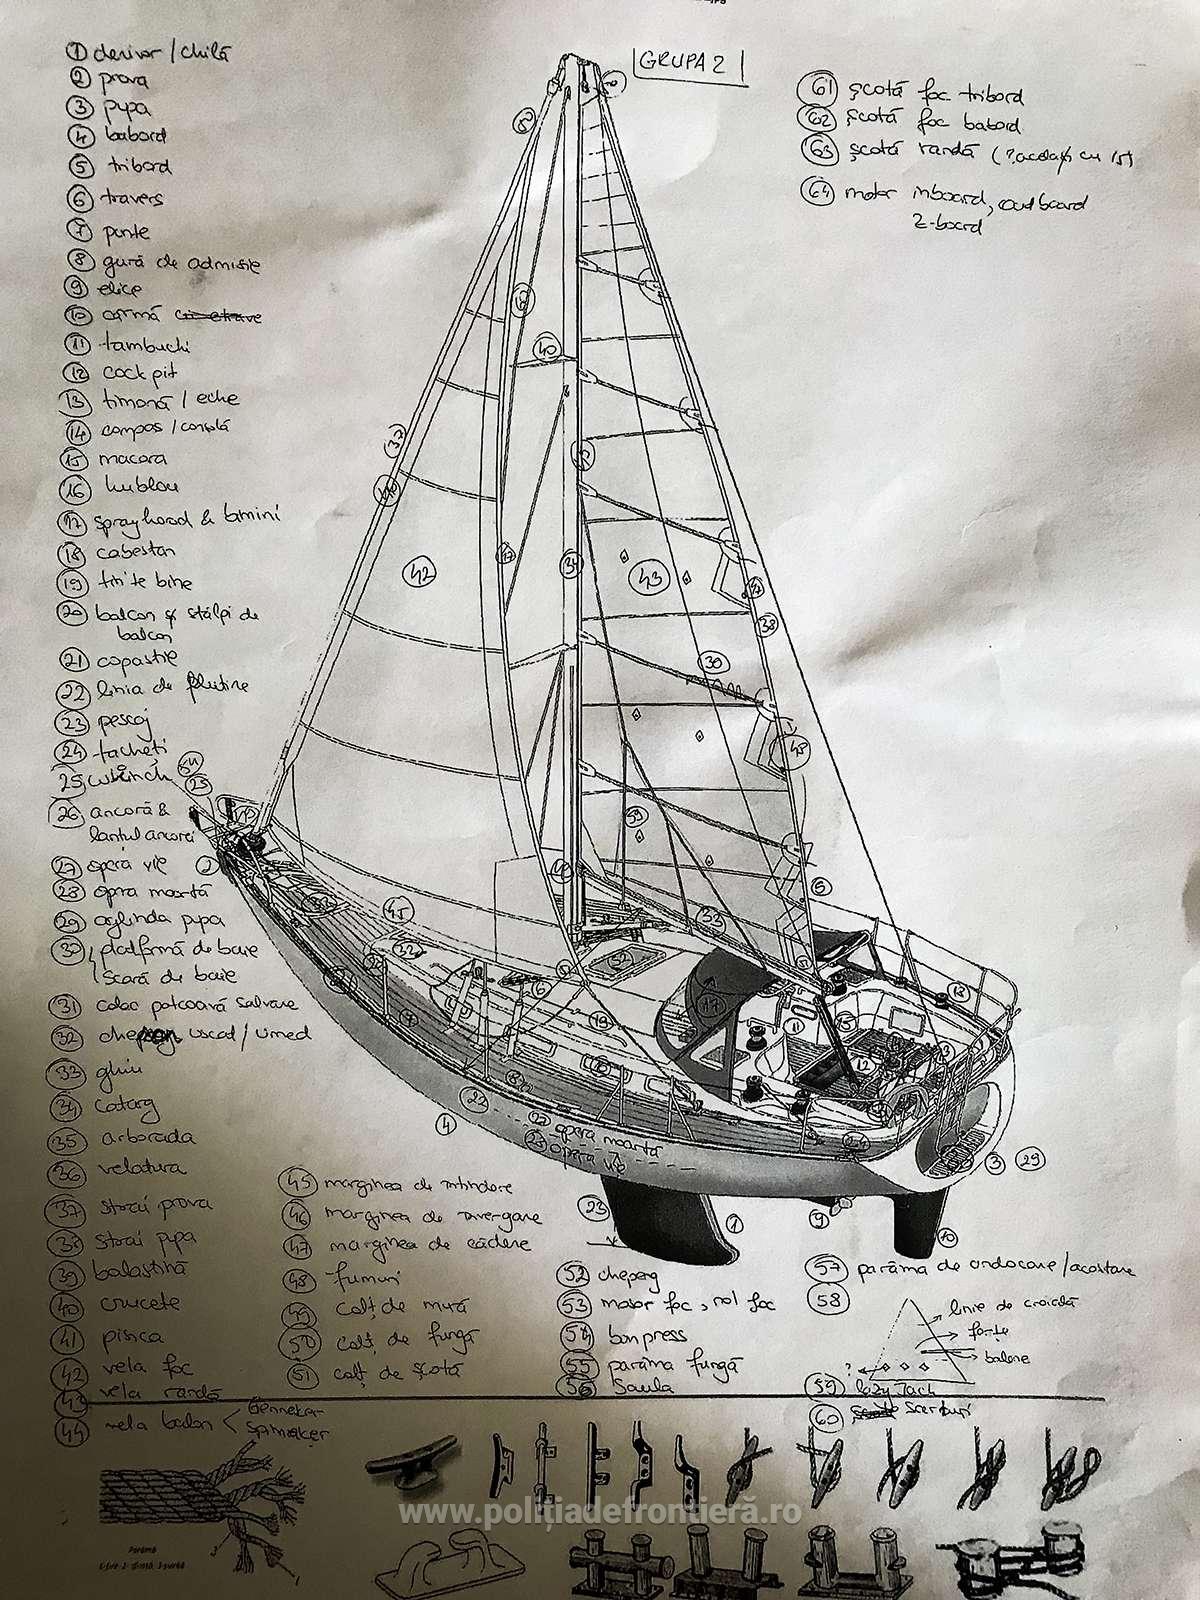 GRUPA 2
1 derivor / chilă
2 prova
3 pupa
4 babord
5 tribord
6 travers
7 punte
8 gură de admisie
9 elice
10 cârmă
11 tambuchi
12 cockpit
13 timonă / eche
14 compas / consolă
15 macara
16 hublou
17 sprayhood & bimini
18 cabestan
19 linite bine
20 balcon și stâlpi de
balcon
21 copastie
22 linia de plutire
23 pescaj
24 tacheți
25 winch
26 ancoră &
lanțul ancorei
27 opera vie
28 opera moartă
29 oglinda pupa
30 platformă de baie
scară de baie
31 colac potcoavă salvare
32 uscat / umed
33 ghiu
34 catarg
35 arborada
36 velatura
37 strai prova
38 strai pupa
39 balastină
40 crucete
41 pisica
42 vela foc
43 vela randă
44 vela balon < Genneker
Spinnaker
45 marginea de întindere
46 marginea de invergare
47 marginea de cădere
48 fumuri
49 colț de mură
50 colț de fungă
51 colț de școtă
52 cheperg
53 rol foc
54 bompress
55 parâma fungă
56 saula
57 parâma de andocare / acostare
58
linie de
forțe
balene
?
59 lazy Jack
60
61 școtă foc tribord
62 școtă foc babord
63 școtă randă
64 motor inboard, outboard
Z-board
opera moartă
opera vie
Parâmă
www.politiadefrontieră.ro